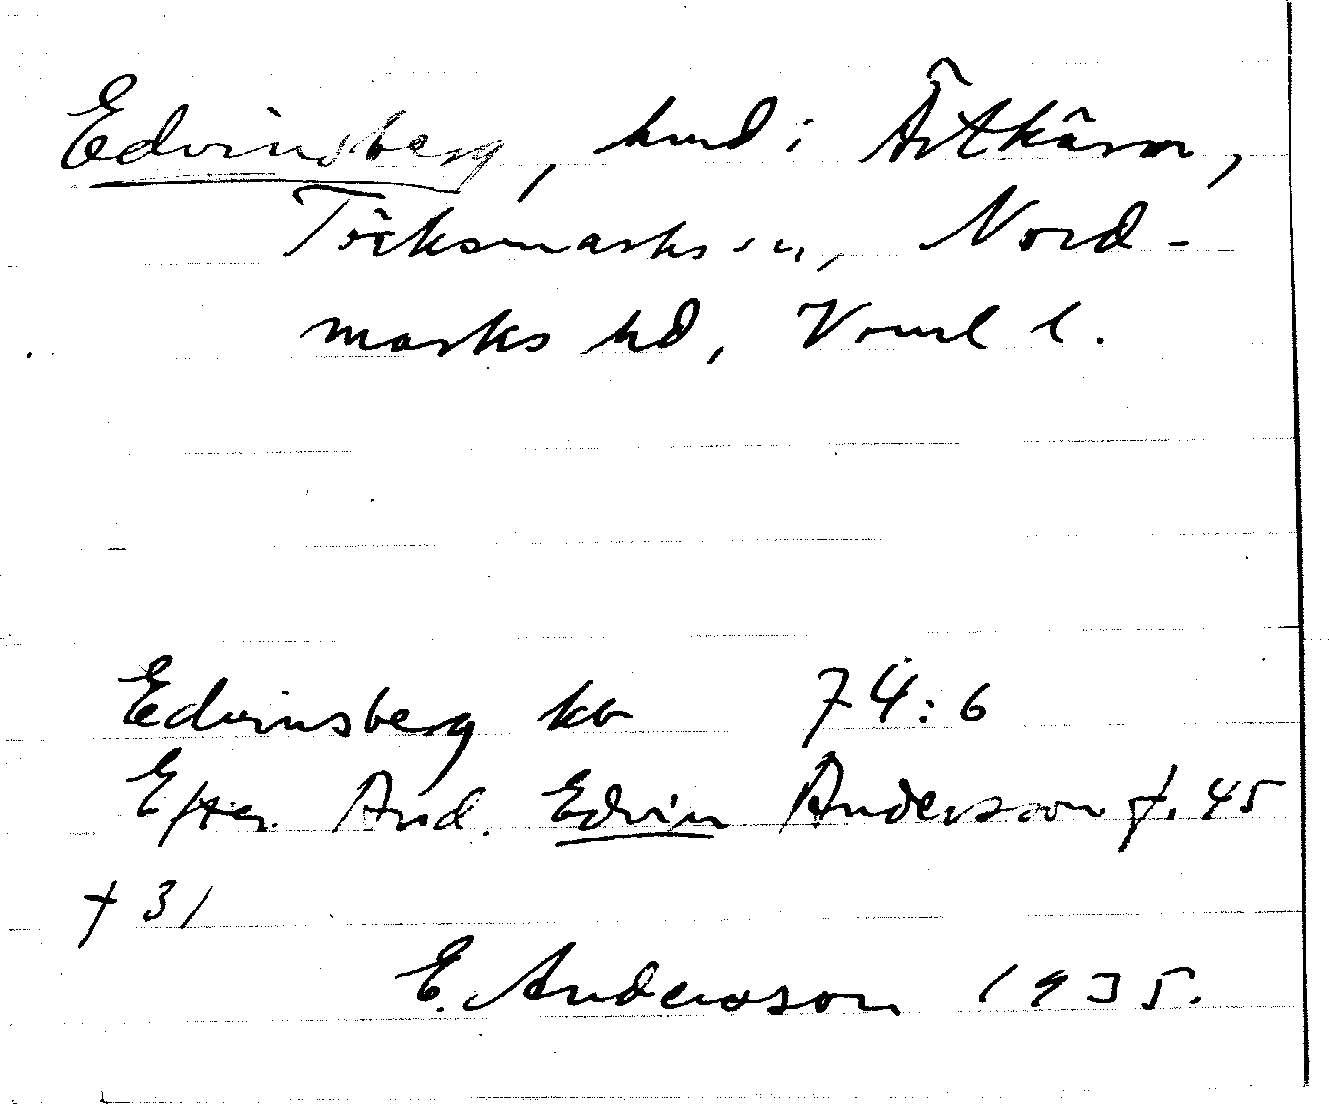 Edvinsberg, hmd i Ärtkärn,
Töcksmarks sn, Nord-
marks hd, Vrml l.
Edvinsberg ka 74:6
Efter And. Edvin Andersson f. 45
† 31
E. Andersson 1935.